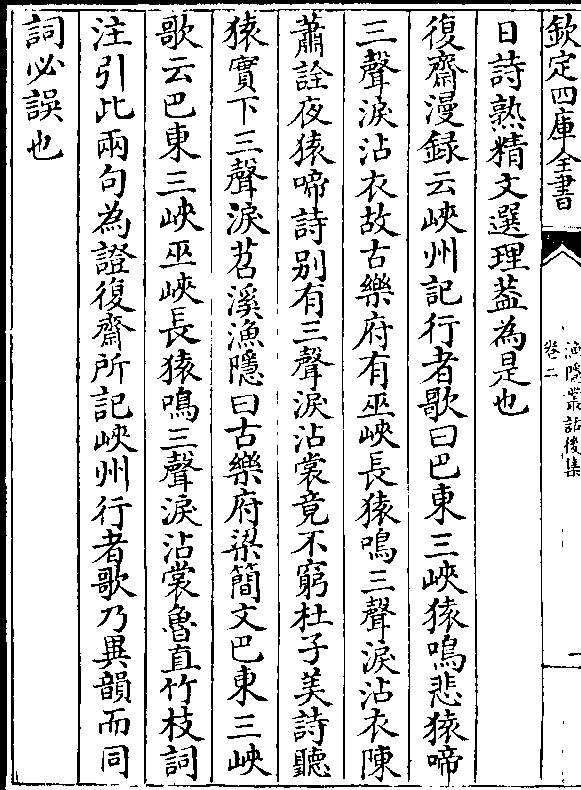 欽定四庫全書
漁隱叢話後集
卷二
一
日詩熟精文選理葢為是也
復齋漫録云峽州記行者歌曰巴東三峽猿鳴悲猿啼
三聲淚沾衣故古樂府有巫峽長猿鳴三聲淚沾衣陳
蕭詮夜猿啼詩别有三聲淚沾裳竟不窮杜子美詩聽
猿實下三聲淚苕溪漁隱曰古樂府梁簡文巴東三峽
歌云巴東三峽巫峽長猿鳴三聲淚沾裳魯直竹枝詞
注引此兩句為證復齋所記峽州行者歌乃異韻而同
詞必誤也